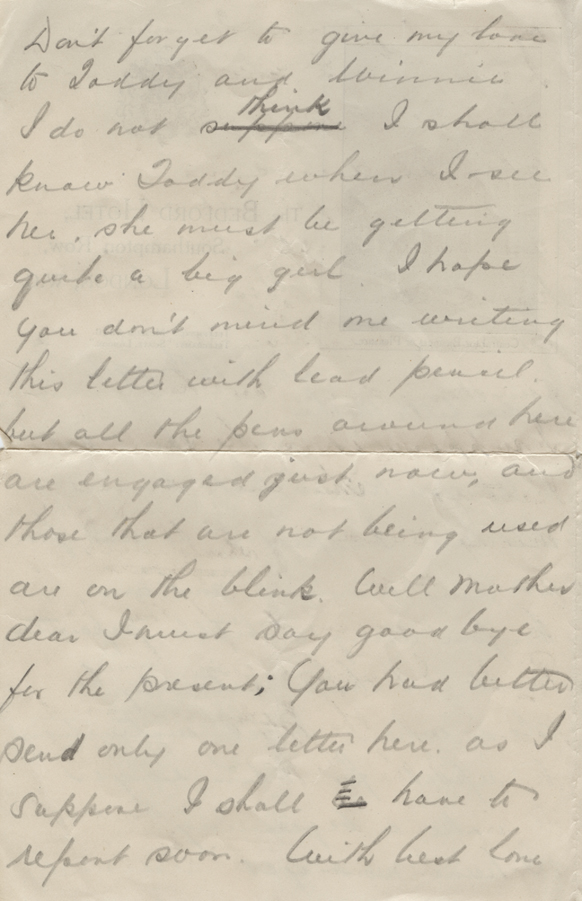 Don't forget to give my love
to Toddy and Winnie.
I do not suppose think I shall
know Toddy when I see
her, she must be getting
quite a big girl I hope
you don't mind me writing
this letter with lead pencil.
but all the pens around here
are engaged just now, and
those that are not being used
are on the blink. Well Mother
dear I must say good bye
for the present; You had better
send only one letter here. as I
suppose I shall have to
report soon. With best love
THE BEDFORD HOTEL,
Southampton Row,
London